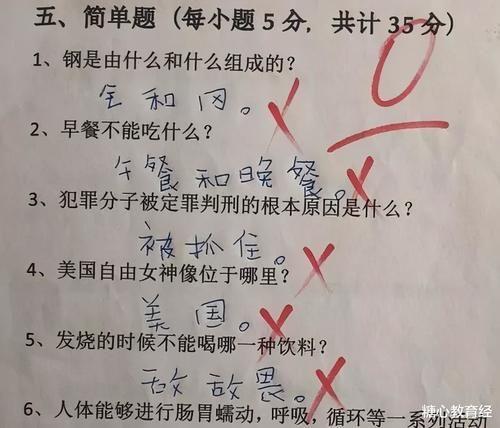 五、简单题（每小题5分，共计35分）
0
1、钢是由什么和什么组成的？
全和冈。
2、早餐不能吃什么？
午餐和晚餐。
3、犯罪分子被定罪判刑的根本原因是什么？
被抓住。
4、美国自由女神像位于哪里？
美国。
5、发烧的时候不能喝哪一种饮料？
敌敌畏。
6、人体能够进行肠胃蠕动，呼吸，循环等一系列活动
糖心教育经